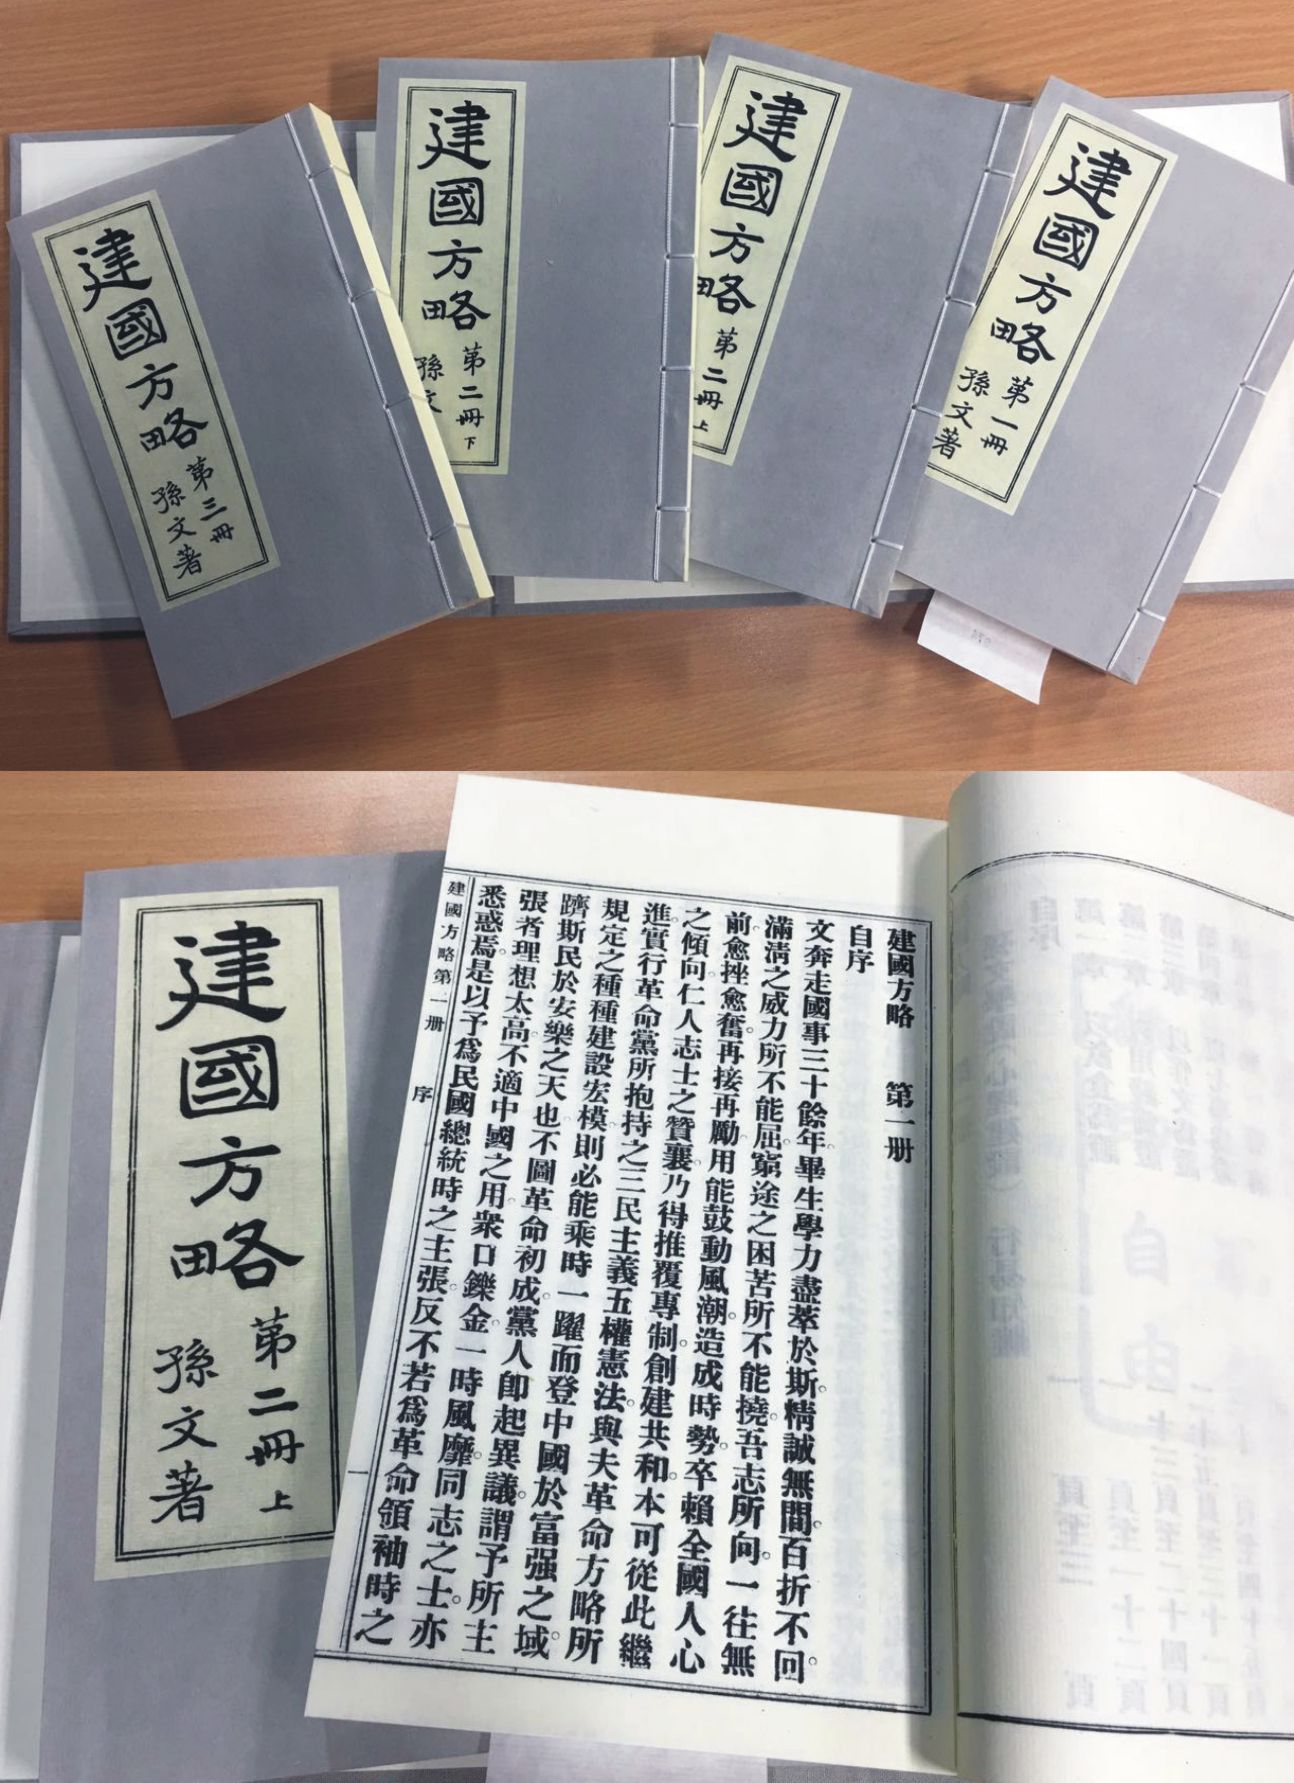 建國方略
第三冊
孫文著
建國方略
第二冊下
孫文
建國方略
第二冊上
建國方略
第一冊
孫文著
建國方略
第二冊上
孫文著
建國方略 第一册
自序
文奔走國事三十餘年畢生學力盡萃於斯。精誠無間。百折不回。
滿淸之威力所不能屈。窮途之困苦所不能撓。吾志所向。一往無
前。愈挫愈奮。再接再勵。用能鼓動風潮。造成時勢。卒賴全國人心
之傾向。仁人志士之贊襄。乃得推覆專制。創建共和。本可從此繼
進。實行革命黨所抱持之三民主義五權憲法。與夫革命方略所
規定之種種建設宏模。則必能乘時一躍而登中國於富强之域。
躋斯民於安樂之天也。不圖革命初成。黨人卽起異議。謂予所主
張者理想太高。不適中國之用。衆口鑠金。一時風靡。同志之士。亦
悉惑焉。是以予爲民國總統時之主張。反不若爲革命領袖時之
建國方略第一册 序 一